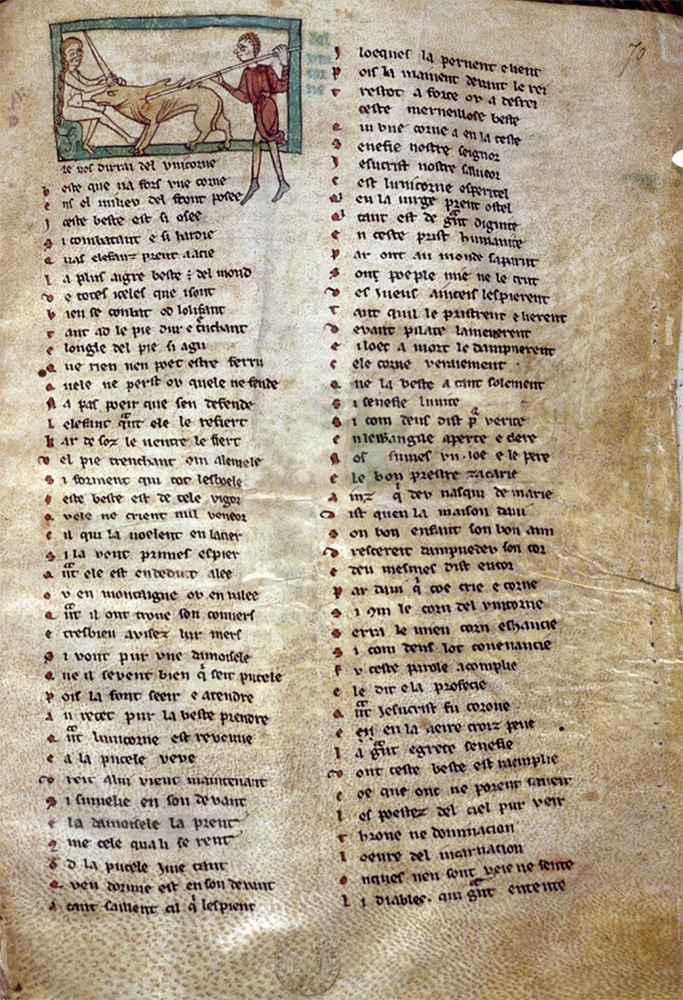 70
Del
vni
cor
ne
re uos dirrai del vnicorne
beste que na fors vne corne
ens el milieu del front posee
ceste beste est si osee
si combatant e si hardie
quas elefanz prent aatie
la plus aigre beste : del mond
de totes iceles que i sont
bien se conbat od lolifant
tant ad le pie dur e trenchant
e longle del pie si agu
que rien nen poet estre feru
quele ne perst ou quele ne fende
na pas poeir que sen defende
lelefant qant ele le refiert
kar de soz le uentre le fiert
del pie trenchant com alemele
si forment qui tot lesboele
ceste beste est de tele vigor
quele ne crient nul veneor
cil qui la uoelent en lacier
si la vont primes espier
qant ele est en deduit alee
ou en montaigne ou en valee
qant il ont troue son conuers
e tresbien auisez lur mers
si vont pur vne damoisele
que il sevent bien q seit pucele
pois la font seeir e atendre
an recet pur la beste prendre
qant lunicorne est reuenue
e a la pucele veue
dreit a lui vient maintenant
si sumelie en son devant
e la damoisele la prent
cume cele qua li se rent
od la pucele iue tant
quen dormie est en son deuant
a tant saillent cil q lespient
iloeques la pernent e lient
pois la mainent deuant le rei
trestot a force ou a desrei
ceste merueillose beste
qui vne corne a en la teste
senefie nostre seignor
iesucrist nostre saueor
cest lunicorne esperitel
qui en la uirge prent ostel
qui tant est de gant dignite
en ceste prist humanite
par ont au monde saparut
sont poeple mie ne le crut
des iueus ainceis lespierent
tant quil le pristrent e lierent
devant pilate lamenerent
e iloec a mort le dampnerent
cele corne veraiement
que la beste a tant solement
si senefie lunite
si com deus dist p verite
en lewangile aperte e clere
nos sumes vn ioe e le pere
e le bon prestre zacarie
ainz q dev nasqui de marie
dist quen la maison daui
son bon enfant son bon ami
drescereit dampnedev son cor
e deu meismes dist encor
par daui q coe crie e corne
si com le corn del vnicorne
serra le mien corn eshaucie
si com deus lot couenancie
fu ceste parole acomplie
e le dit e la profecie
qant iesucrist fu corone
e en la veire croiz pene
la gant egrece senefie
dont ceste beste est raemplie
coe que ont ne porent saueir
les poestez del ciel pur veir
trone ne dominacion
loeure del incarnacion
onques nen sont veie ne sente
li diables. qui gant entente